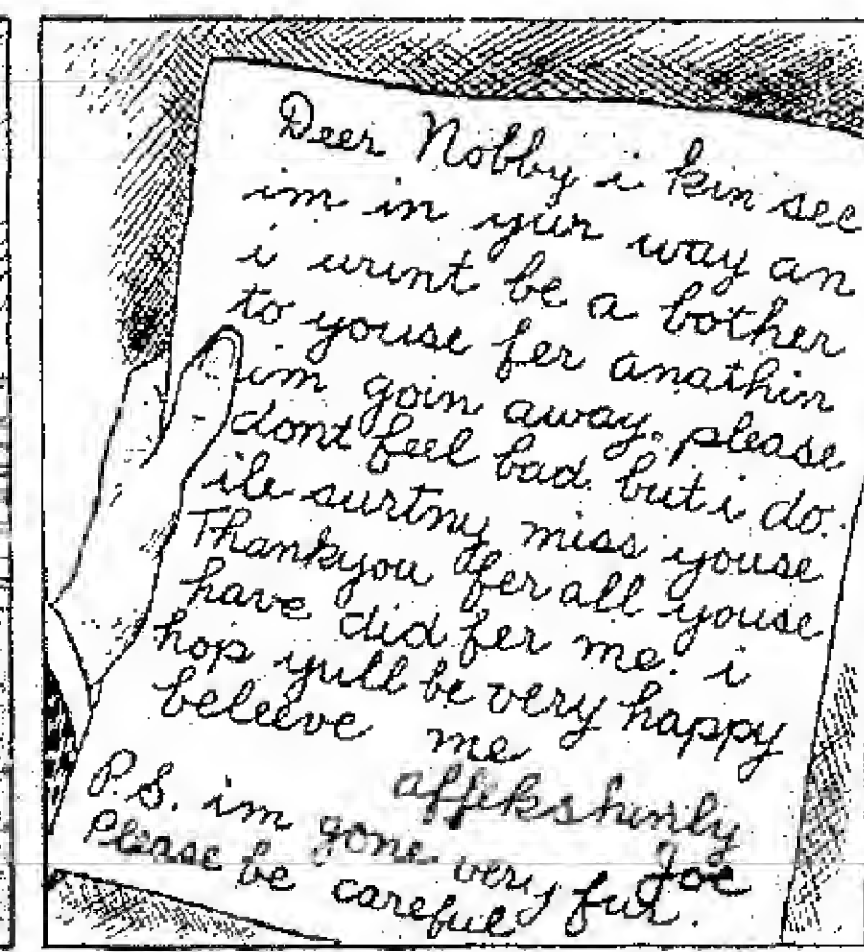 Deer Nobby i kin see
im in yur way an
i wunt be a bother
to youse fer anathin
im goin away. please
dont feel bad but i do.
ile surtny miss youse
Thankyou fer all youse
have did fer me. i
hop yull be very happy
beleeve me
affekshunly
Joe
P.S. im gone very fur.
Please be careful